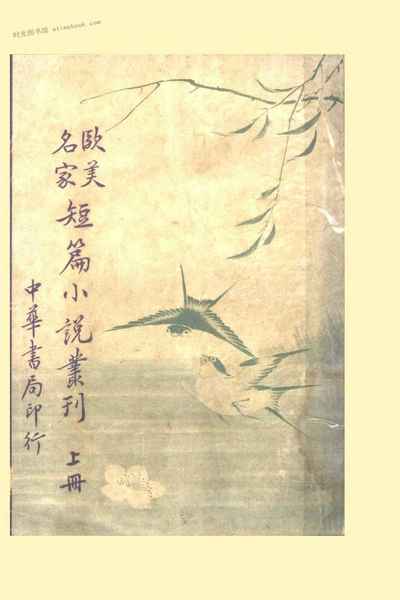 时光图书馆 etimebook.com
歐美
名家
短篇小說叢刊 上冊
中華書局印行